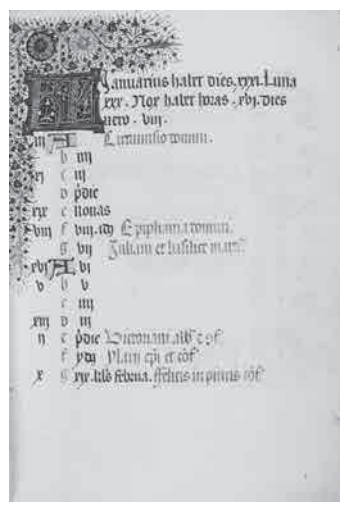 Januarius habet dies .xxxi. Luna
xxx. Nox habet horas .xvj. dies
uero . viij.
iij A Circumcisio domini.
b iiij
xj c iij
d pdie
xix e nonas
viij f viij. idy Epiphania domini.
g vij Juliani et basilice mar
xvj A vj
v b v
c iiij
xiij d iij
ij e pdie
f ydy Ylarii epi et cof
x g xix. kls februa. ffelicis in pincis cof